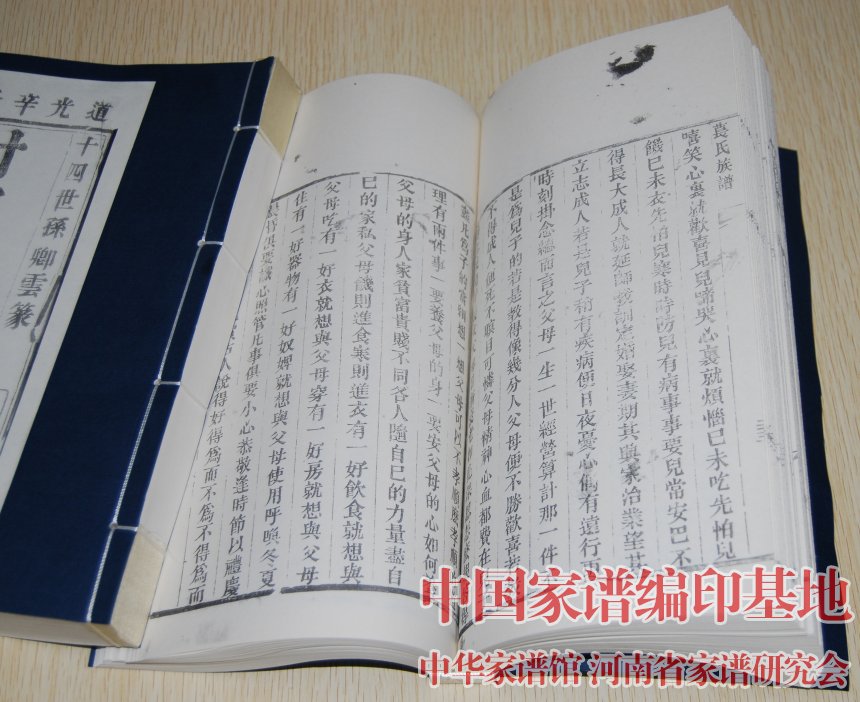 道光辛
十四世孫卿雲篆
袁氏族譜
嘻笑心裏就歡喜見兒啼哭心裏就煩惱巳未吃先怕兒
饑巳未衣先怕兒寒時時防兒有病事事要兒常安巴不
得長大成人就延師教訓定婚娶妻期其興家治業望其
立志成人若是兒子稍有疾病便日夜憂心倘有遠行更
時刻掛念總而言之父母一生一世經營算計那一件
是爲兒子的若是教得像幾分人父母便不勝歡喜
不得成人他死不瞑目可憐父母精神心血都費在
子的
理有兩件事一要養父母的身一要安父母的心如何
父母的身人家貧富貴賤不同各人隨自巳的力量盡自
巳的家私父母饑則進食寒則進衣有一好飲食就想與
父母吃有一好衣就想與父母穿有一好房就想與父母
住有一好器物有一好奴婢就想與父母使用呼喚冬夏
俱要小心照管凡事俱要小心恭敬逢時節以禮慶
人說得好得爲而不爲不得爲而
中国家谱编印基地
中华家谱馆 河南省家谱研究会